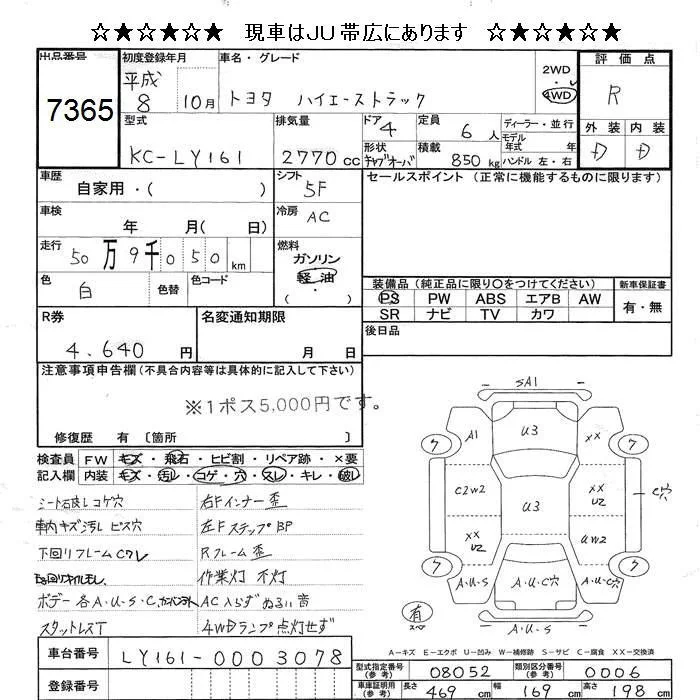 ☆★☆★☆★ 現車はJU帯広にあります ☆★☆★☆★
出品番号 初度登録年月 車名・グレード 評価点
7365 平成 8 10月 トヨタ ハイエーストラック 2WD 4WD R
型式 排気量 ドア 定員 ディーラー・並行 外装 内装
KC-LY161 2770cc 4 6人 モデル年式 年 D D
形状 キャブオーバ 積載 850kg ハンドル 左・右
車歴 自家用・( ) シフト 5F セールスポイント(正常に機能するものに限ります)
車検 年 月( 日) 冷房 AC
走行 50万9千050km 燃料 ガソリン 軽油 ( ・ )
色 白 色替 色コード 装備品(純正品に限り○をつけてください) 新車保証書
PS PW ABS エアB AW 有・無
SR ナビ TV カワ
R券 名変通知期限 後日品
4.640円 月 日
注意事項申告欄(不具合内容等は具体的に記入して下さい)
※1ポス5,000円です。
修復歴 有 〔箇所 〕
検査員 FW キズ・飛石・ヒビ割・リペア跡・×要
記入欄 内装 キズ・汚レ・コゲ・穴・スレ・キレ・破レ
シート破レコゲ穴 右Fインナー歪
車内キズ汚レ ビス穴 左FステップBP
下回リフレームCワレ Rフレーム歪
作業灯 不灯
ボデー各A・U・S・C AC入らずぬるい 音
スタットレスT 4WDランプ点灯せず
SA1
ワ A1 U3 XX ワ
C2W2 U3 XX U2 C穴
XX U2 UW2
ワ A・U・S A・U・C穴 A・U・S ワ
有 スペア A・U・S
A-キズ E-エクボ U-凹み W-補修跡 S-サビ C-腐食 XX-交換済
車台番号 LY161-0003078
登録番号
型式指定番号(参考) 08052 類別区分番号(参考) 0006
車庫証明用(参考) 長さ 469cm 幅 169cm 高さ 198cm